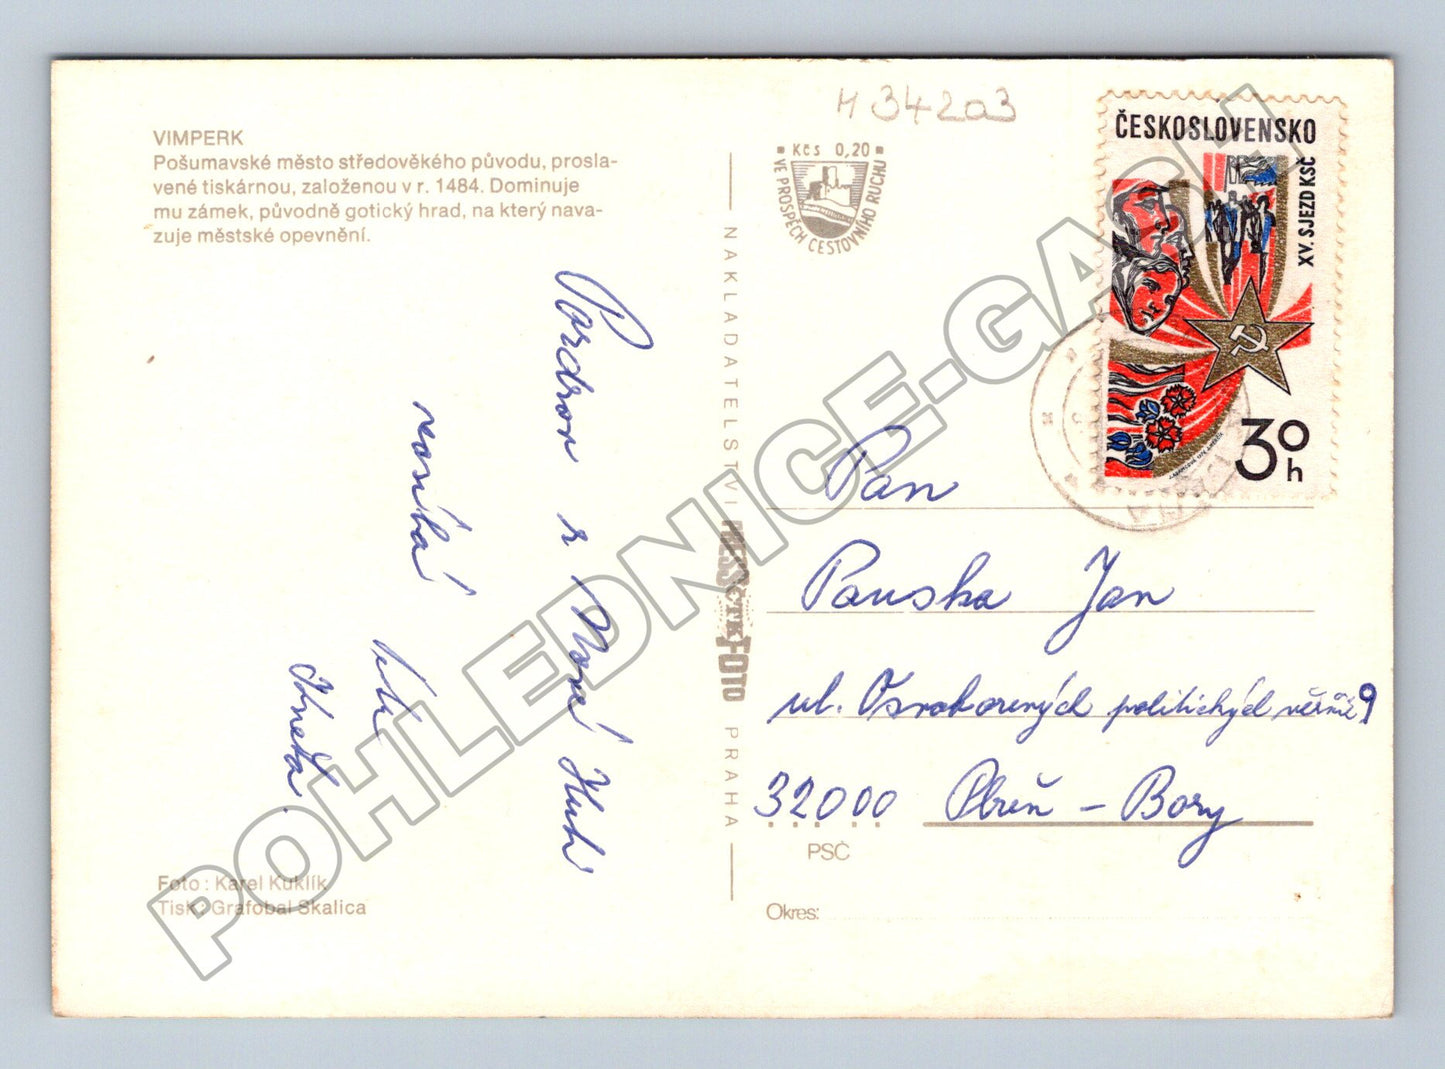 VIMPERK
Pošumavské město středověkého původu, prosla-
vené tiskárnou, založenou v r. 1484. Dominuje
mu zámek, původně gotický hrad, na který nava-
zuje městské opevnění.
Pozdrav z Nové Hutě
posílá
Foto: Karel Kuklík
Tisk: Grafobal Skalica
NAKLADATELSTVÍ PRESSFOTO PRAHA
ČTK
H 342a3
Kčs 0,20
VE PROSPĚCH CESTOVNÍHO RUCHU
ČESKOSLOVENSKO
XV. SJEZD KSČ
30 h
Pan
Pauska Jan
ul. Osvobozených politických vězňů 9
32000 Plzeň - Bory
PSČ
Okres:
POHLEDNICE-GASH